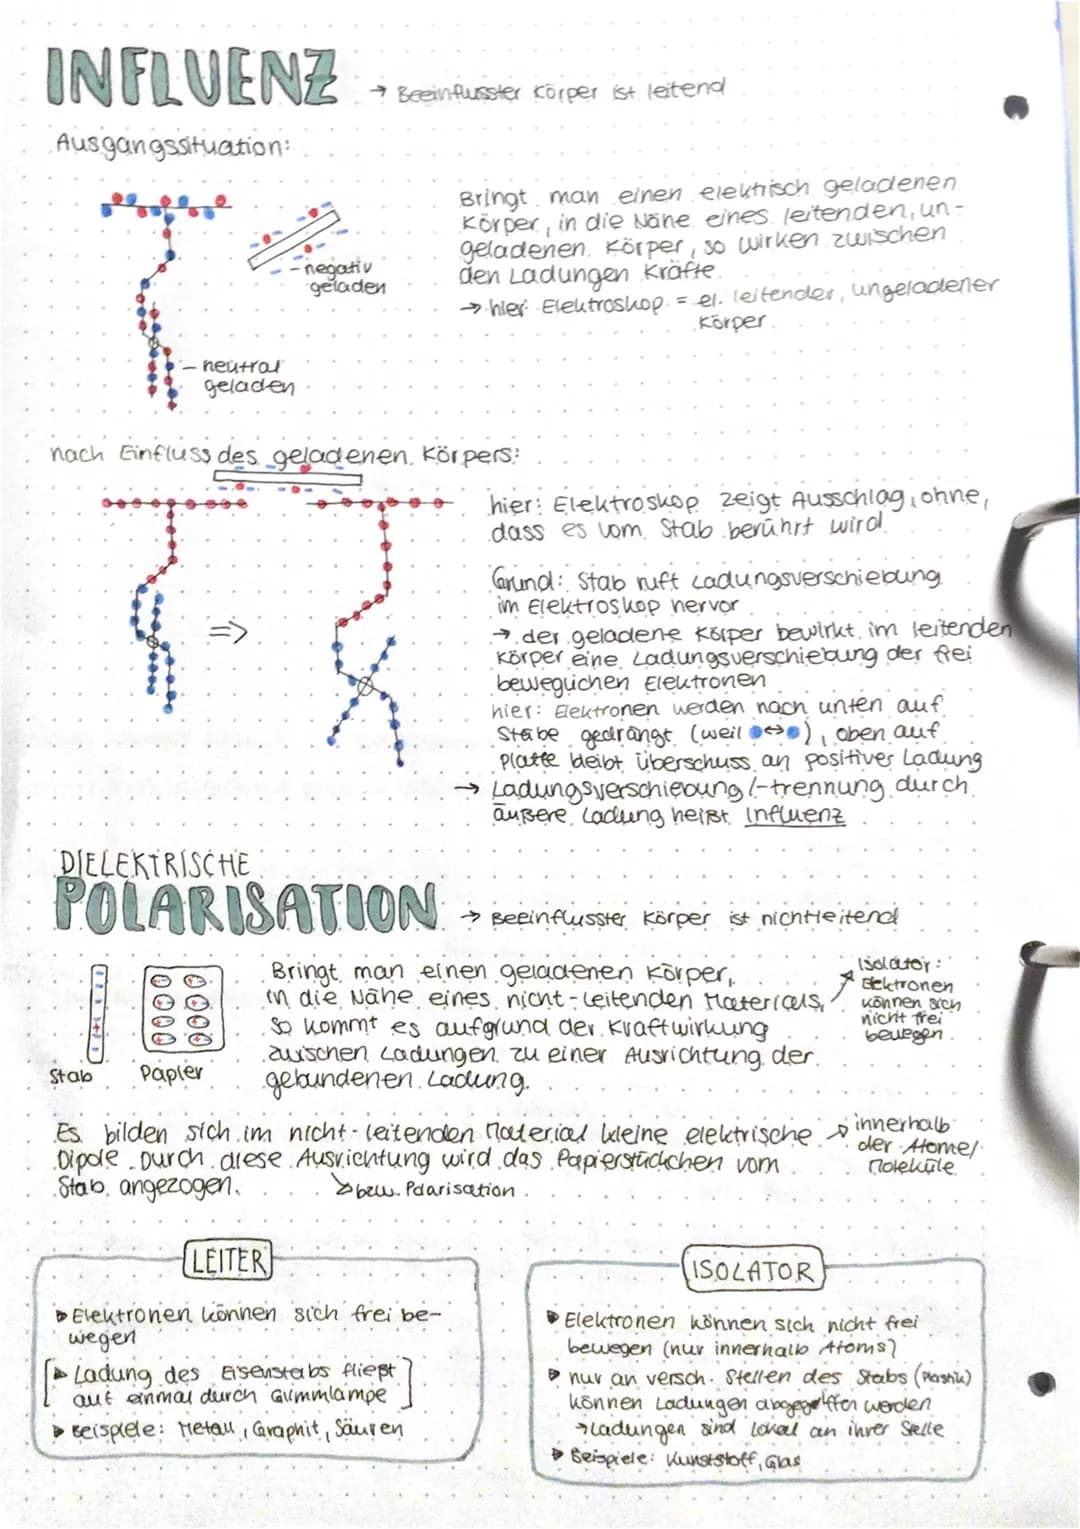 INFLUENZ → Beeinflusster Körper ist leitend
Ausgangssituation:
Bringt man einen elektrisch geladenen
Körper, in die Nähe eines leitenden, un-
geladenen Körper, so wirken zwischen
den Ladungen Kräfte.
→ hier: Elektroskop = el. leitender, ungeladener
Körper
- negativ
geladen
- neutral
geladen
nach Einfluss des geladenen Körpers:
hier: Elektroskop zeigt Ausschlag, ohne,
dass es vom Stab berührt wird
Grund: Stab ruft Ladungsverschiebung
im Elektroskop hervor
→ der geladene Körper bewirkt im leitenden
Körper eine Ladungsverschiebung der frei
beweglichen Elektronen
hier: Elektronen werden nach unten auf
Stäbe gedrängt (weil ↔), oben auf
Platte bleibt Überschuss an positiver Ladung
→ Ladungsverschiebung/-trennung durch
äußere Ladung heißt Influenz
=>
DIELEKTRISCHE
POLARISATION → Beeinflusster Körper ist nichtleitend
Bringt man einen geladenen Körper,
in die Nähe eines nicht-leitenden Materials,
so kommt es aufgrund der Kraftwirkung
zwischen Ladungen zu einer Ausrichtung der
gebundenen Ladung.
Isolator:
Elektronen
können sich
nicht frei
bewegen
Stab Papier
Es bilden sich im nicht-leitenden Material kleine elektrische
Dipole. Durch diese Ausrichtung wird das Papierstückchen vom
Stab angezogen. bzw. Polarisation
innerhalb
der Atome/
Moleküle
LEITER
Elektronen können sich frei be-
wegen
[Ladung des Eisenstabs fließt
auf einmal durch Glimmlampe]
Beispiele: Metall, Graphit, Säuren
ISOLATOR
Elektronen können sich nicht frei
bewegen (nur innerhalb Atoms)
nur an versch. Stellen des Stabs (Plastik)
können Ladungen abgegriffen werden
→ Ladungen sind lokal an ihrer Stelle
Beispiele: Kunststoff, Glas